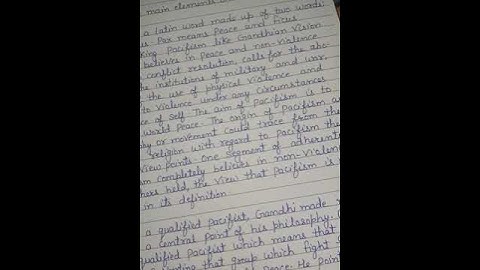 main elements
a Latin word made up of two words:
Pax means Peace and Fices
Pacifism like Gandhian Vision
believes in Peace and non-violence
conflict resolution, calls for the abo-
institutions of military and war,
the use of physical violence and
to violence under any circumstances
of Self. The aim of Pacifism is to
world Peace. The origin of Pacifism as
or movement could trace from the
religion with regard to Pacifism the
view points. One segment of adherents
completely believes in non-violence
held, the view that Pacifism is
in its definition
a qualified pacifist, Gandhi made
a central point of his philosophy.
qualified Pacifist which means that
that group which fight
peace. He point